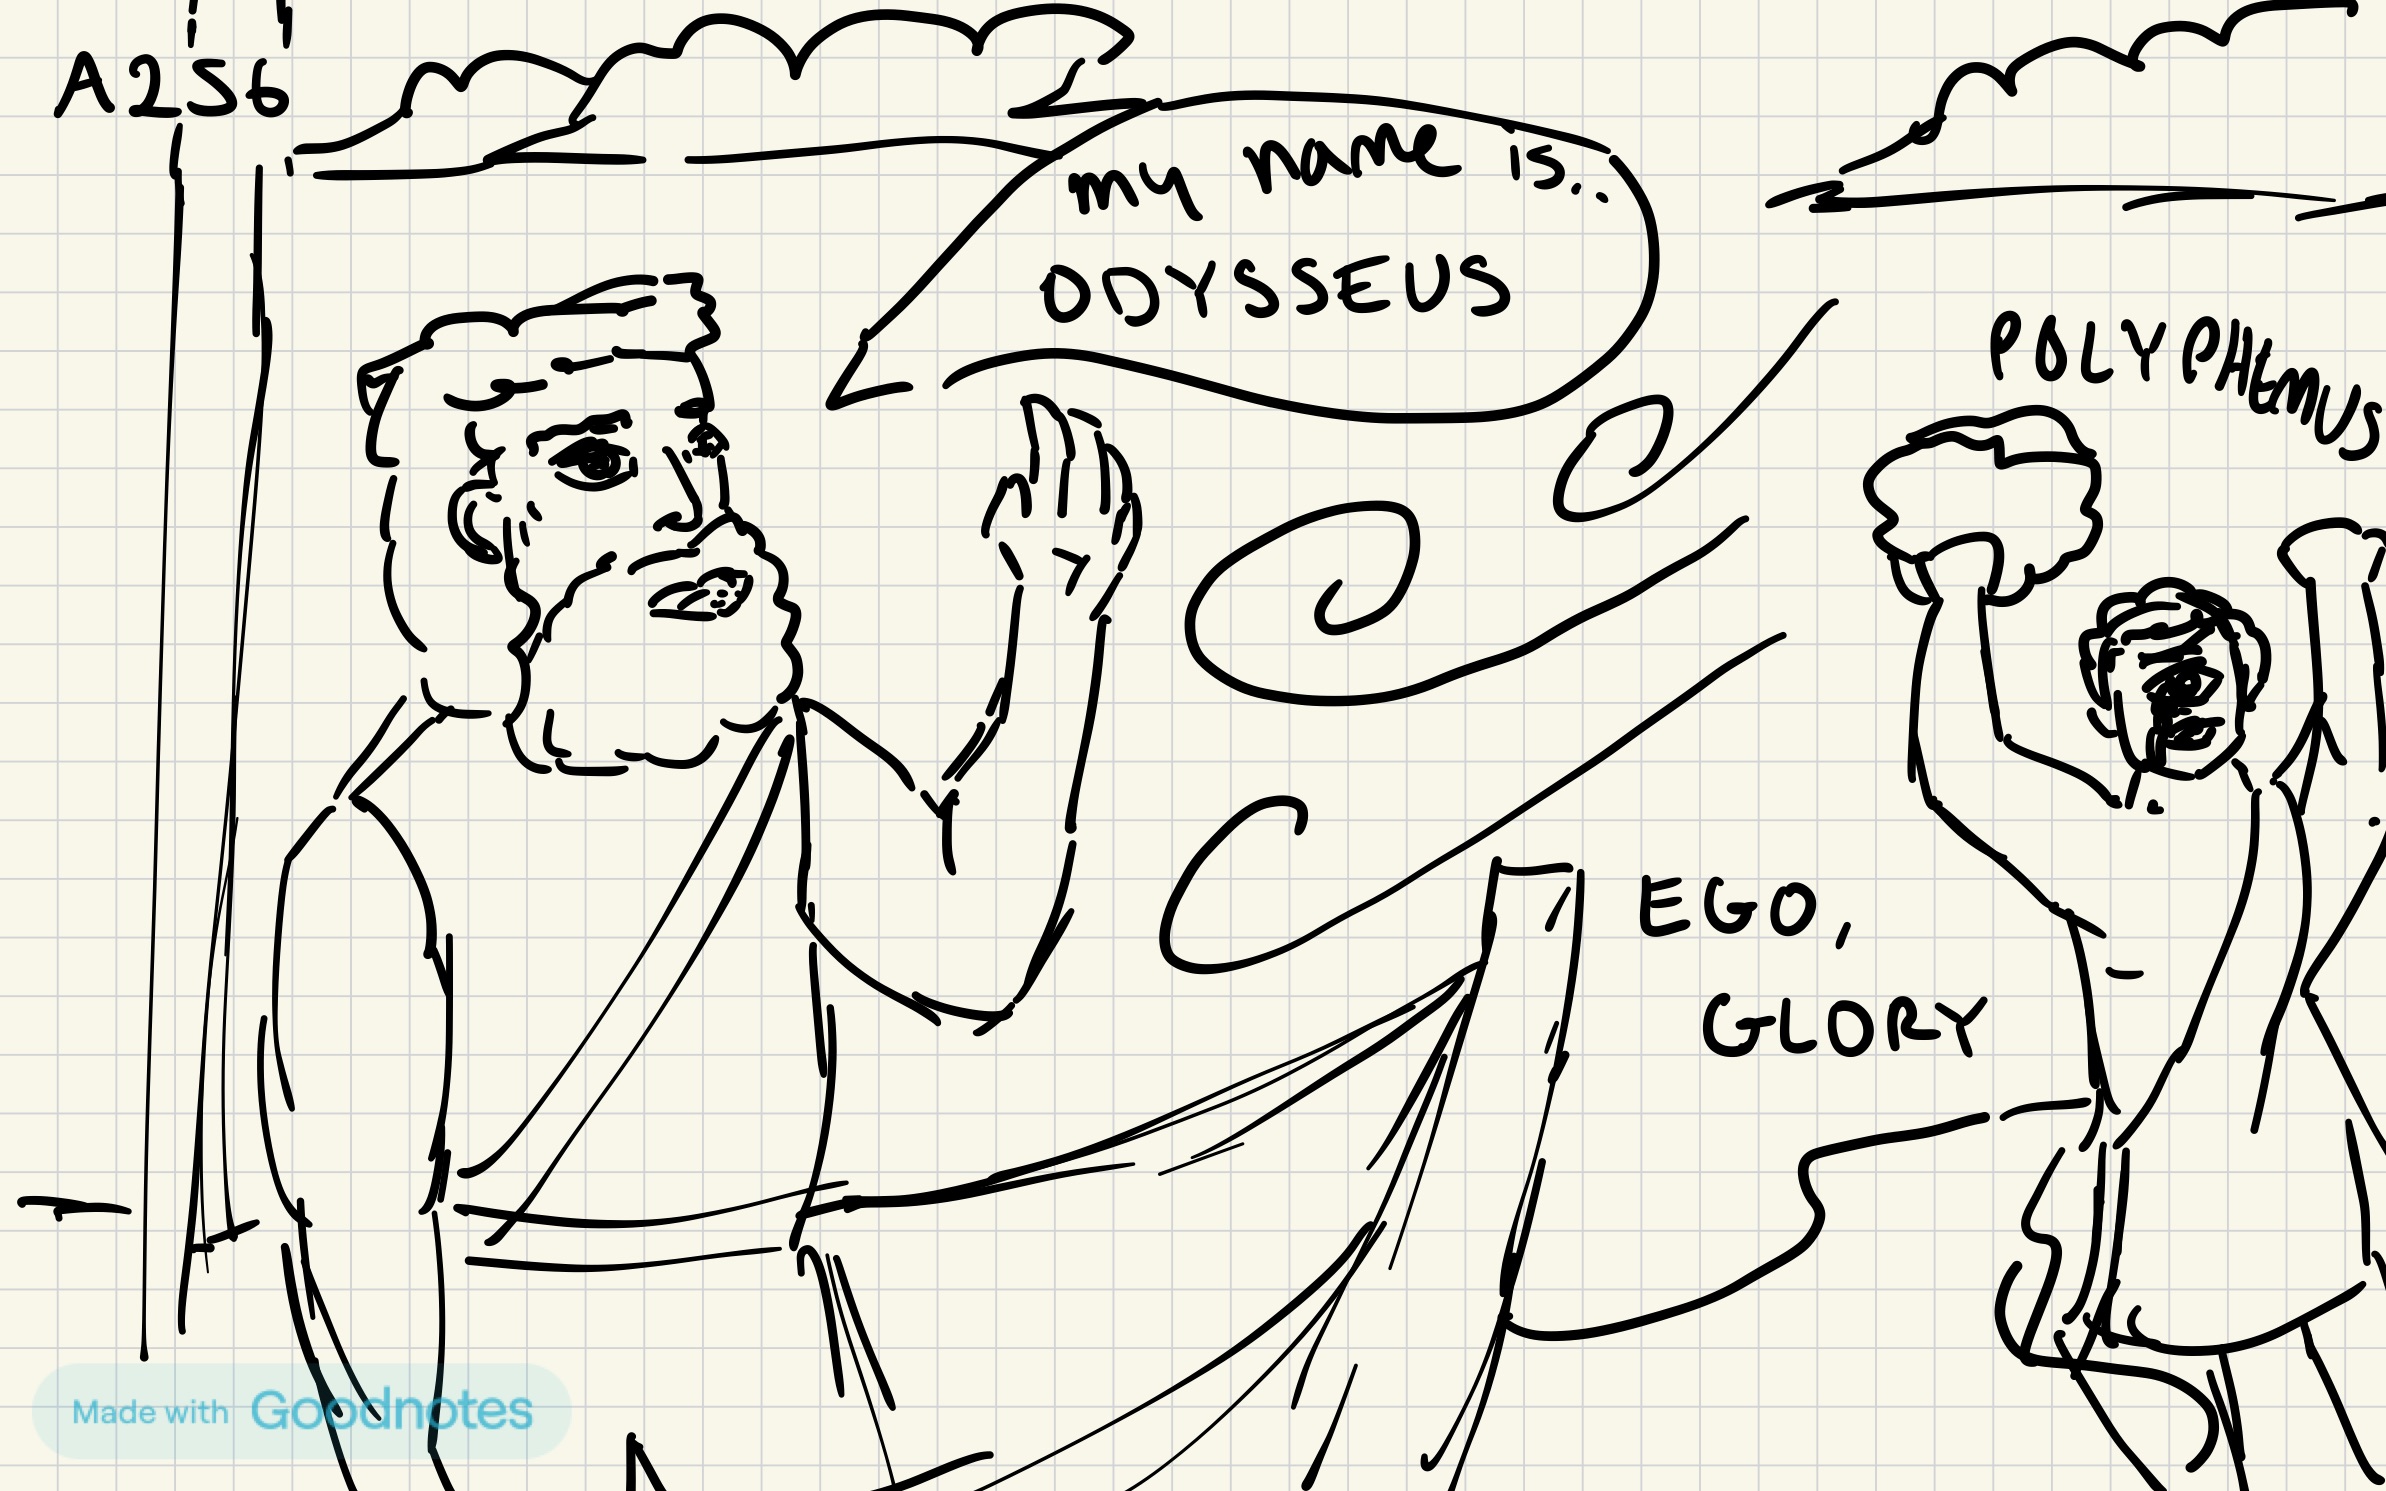 A256
my name is...
ODYSSEUS
POLYPHEMUS
EGO,
GLORY
Made with Goodnotes